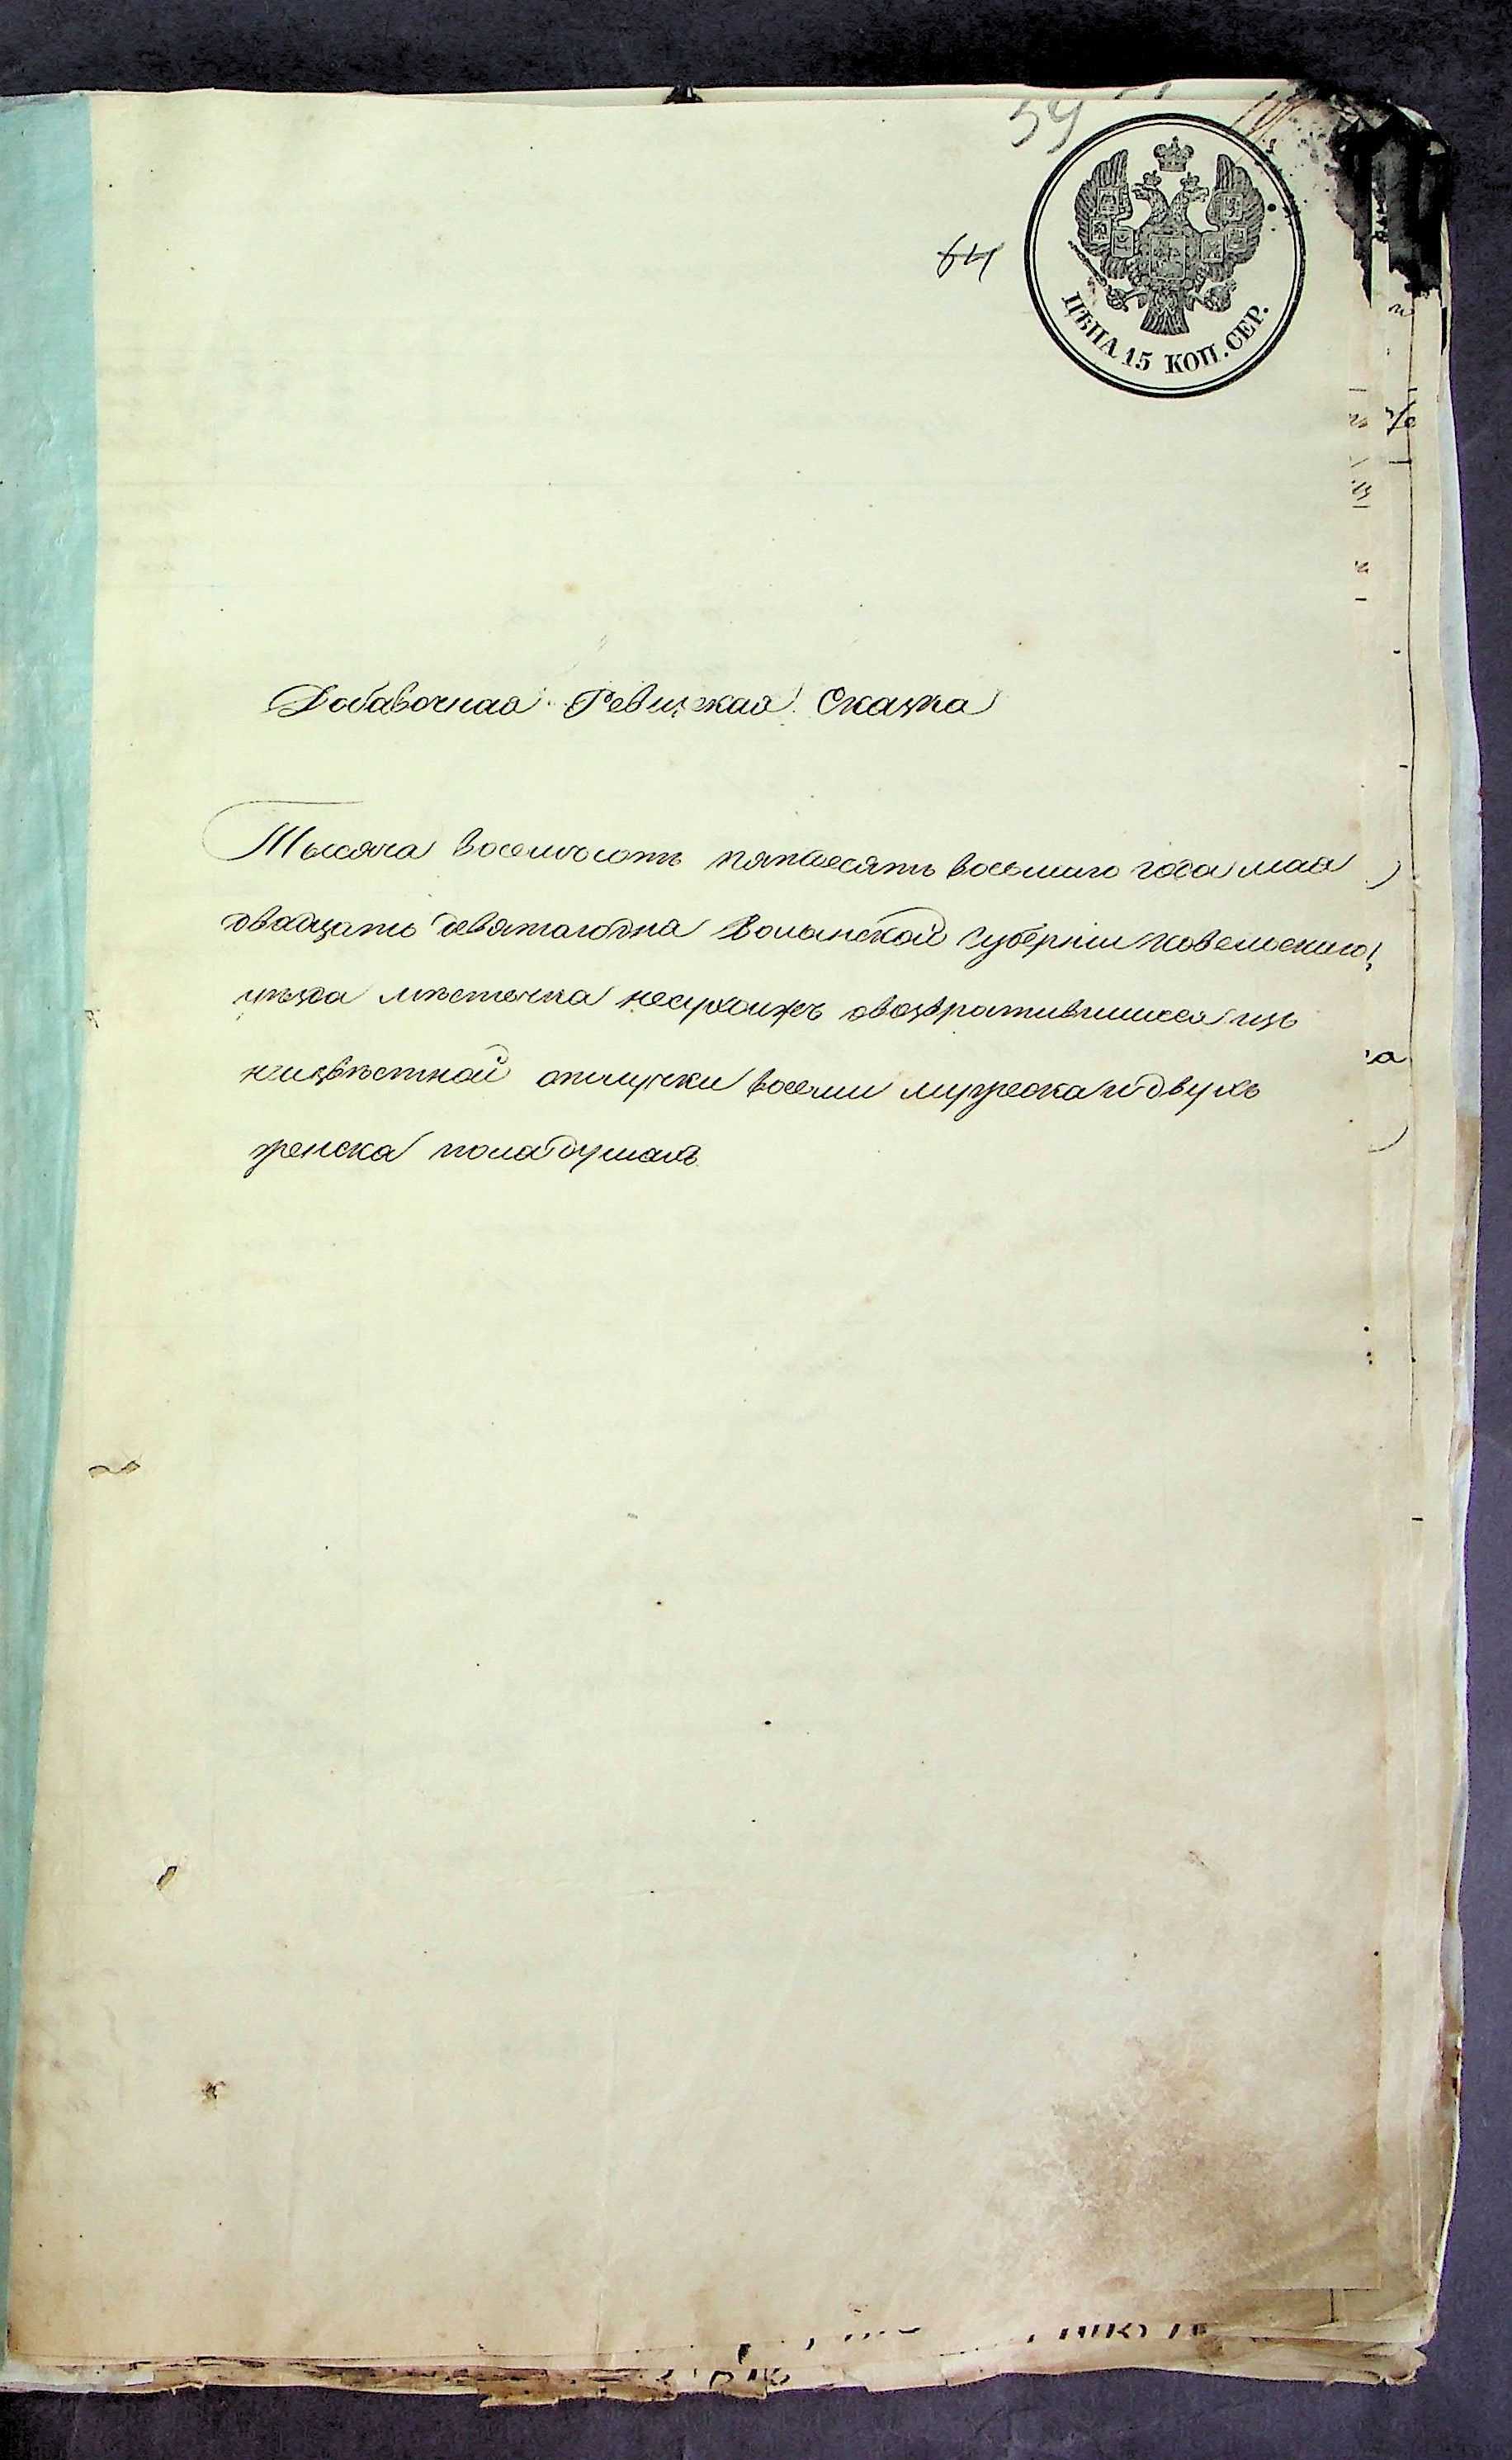 59
64
ЦѢНА 15 КОП. СЕР.
Добавочная Ревизская Сказка
Тысяча восемьсотъ пятдесятъ восьмаго года мая
двадцать девятаго дня Волынской Губерніи Ковельскаго
уѣзда мѣстечка Несухоижъ овозвратившихся изъ
неизвѣстной отлучки восьми мужеска и двухъ
женска пола душахъ